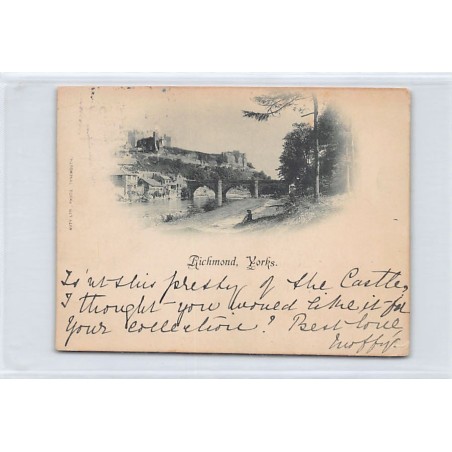 Richmond, Yorks.
Is'nt this pretty of the Castle,
I thought you would like it for
Your collection? Best love,
Moffy.